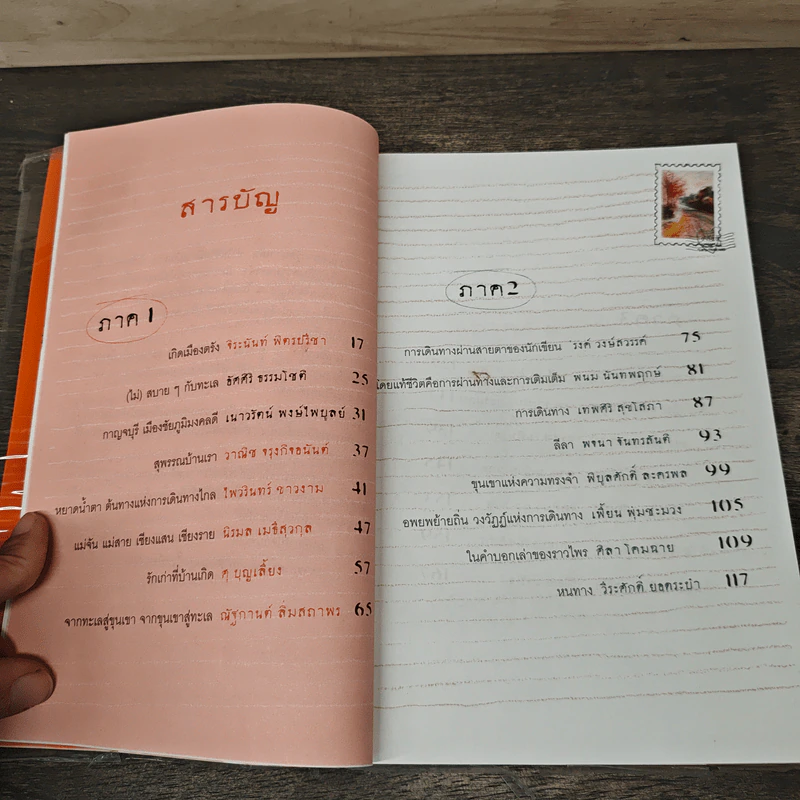 สารบัญ
ภาค 1
เกิดเมืองตรัง จิระนันท์ พิตรปรีชา 17
(ไม่) สบาย ๆ กับทะเล ธัศศิริ ธรรมโชติ 25
กาญจบุรี เมืองชัยภูมิมงคลดี เนาวรัตน์ พงษ์ไพบูลย์ 31
สุพรรณบ้านเรา วาณิช จรุงกิจอนันต์ 37
หยาดน้ำตา ต้นทางแห่งการเดินทางไกล ไพวรินทร์ ขาวงาม 41
แม่จัน แม่สาย เชียงแสน เชียงราย นิรมล เมธีสุวกุล 47
รักเก่าที่บ้านเกิด ๆ บุญเลี้ยง 57
จากทะเลสู่ขุนเขา จากขุนเขาสู่ทะเล ณัฐกานต์ ลิ่มสถาพร 65
ภาค 2
การเดินทางผ่านสายตาของนักเขียน 'รงค์ วงษ์สวรรค์ 75
โดยแท้ชีวิตคือการผ่านทางและการเติมเต็ม พนม นันทพฤกษ์ 81
การเดินทาง เทพศิริ สุขโสภา 87
ลีลา พจนา จันทรสันติ 93
ขุนเขาแห่งความทรงจำ พิบูลศักดิ์ ละครพล 99
อพยพย้ายถิ่น วงวัฏฏ์แห่งการเดินทาง เพี้ยน พุ่มชะมวง 105
ในคำบอกเล่าของราวไพร ศิลา โคมฉาย 109
หนทาง วีระศักดิ์ ยอดระบำ 117